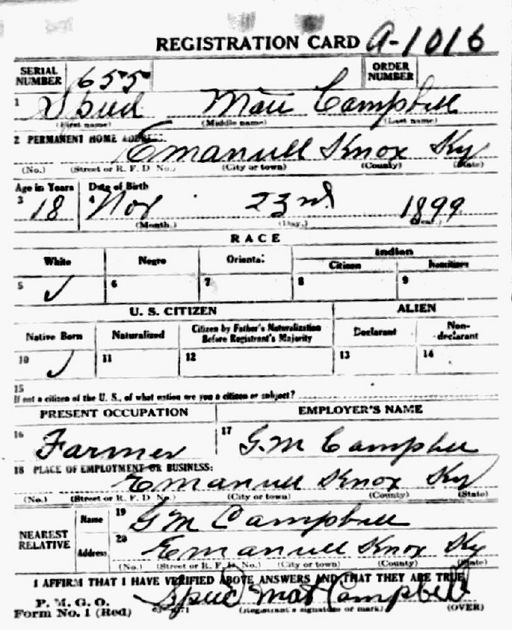 REGISTRATION CARD A-1016
SERIAL NUMBER 655 ORDER NUMBER
1 Spud Mat Campbell
(First name) (Middle name) (Last name)
2 PERMANENT HOME ADDRESS:
Emanuell Knox Ky
(No.) (Street or R. F. D. No.) (City or town) (County) (State)
Age in Years Date of Birth
3 18 4 Nov 23rd 1899
(Month.) (Day.) (Year.)
RACE
White Negro Oriental Indian
Citizen Noncitizen
5 ✓ 6 7 8 9
U. S. CITIZEN ALIEN
Native Born Naturalized Citizen by Father's Naturalization Before Registrant's Majority Declarant Non-declarant
10 ✓ 11 12 13 14
15
If not a citizen of the U. S., of what nation are you a citizen or subject?
PRESENT OCCUPATION EMPLOYER'S NAME
16 Farmer 17 G. M Campbell
18 PLACE OF EMPLOYMENT OR BUSINESS:
Emanuell Knox Ky
(No.) (Street or R. F. D. No.) (City or town) (County) (State)
NEAREST RELATIVE Name 19 G M Campbell
Address 20 Emanuell Knox Ky
(No.) (Street or R. F. D. No.) (City or town) (County) (State)
I AFFIRM THAT I HAVE VERIFIED ABOVE ANSWERS AND THAT THEY ARE TRUE
P. M. G. O.
Form No. 1 (Red) Spud Mat Campbell
(Registrant's signature or mark) (OVER)